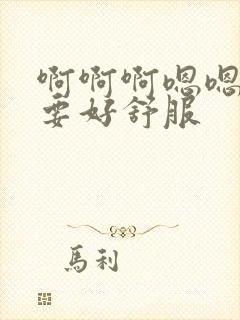 啊啊啊嗯嗯
要好舒服
馬利